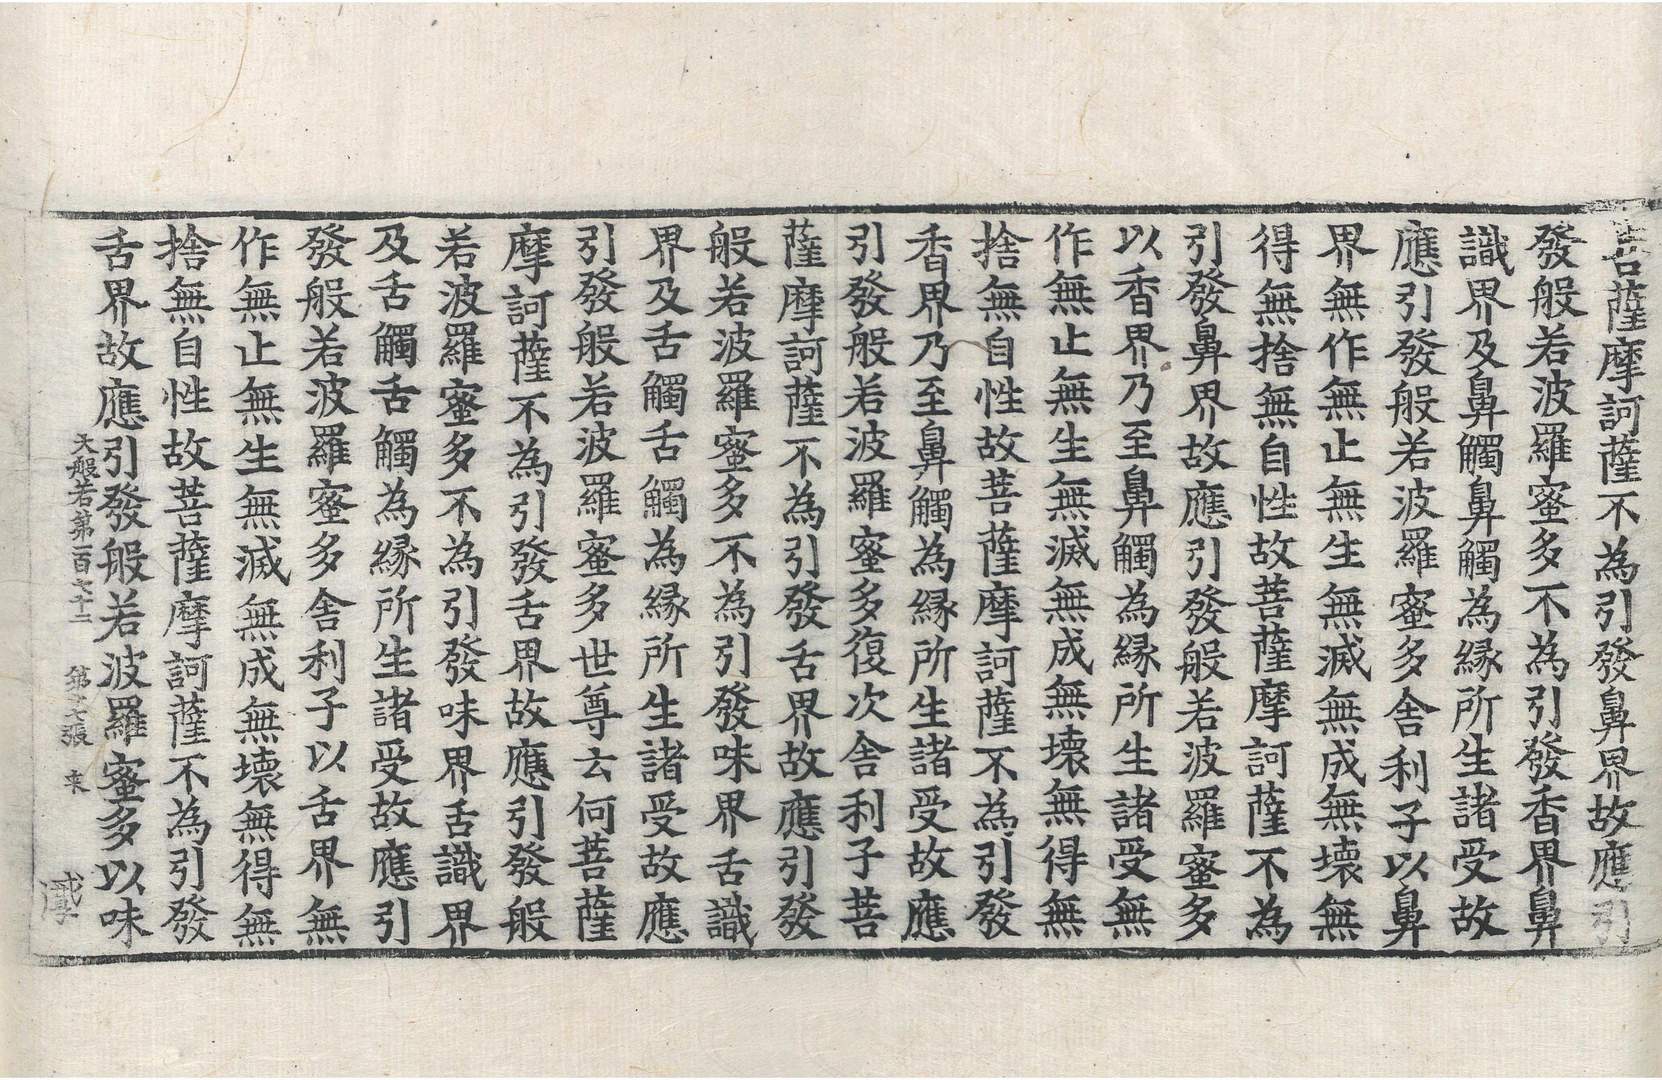 菩薩摩訶薩不為引發鼻界故應引
發般若波羅蜜多不為引發香界鼻
識界及鼻觸鼻觸為緣所生諸受故
應引發般若波羅蜜多舍利子以鼻
界無作無止無生無滅無成無壞無
得無捨無自性故菩薩摩訶薩不為
引發鼻界故應引發般若波羅蜜多
以香界乃至鼻觸為緣所生諸受無
作無止無生無滅無成無壞無得無
捨無自性故菩薩摩訶薩不為引發
香界乃至鼻觸為緣所生諸受故應
引發般若波羅蜜多復次舍利子菩
薩摩訶薩不為引發舌界故應引發
般若波羅蜜多不為引發味界舌識
界及舌觸舌觸為緣所生諸受故應
引發般若波羅蜜多世尊云何菩薩
摩訶薩不為引發舌界故應引發般
若波羅蜜多不為引發味界舌識界
及舌觸舌觸為緣所生諸受故應引
發般若波羅蜜多舍利子以舌界無
作無止無生無滅無成無壞無得無
捨無自性故菩薩摩訶薩不為引發
舌界故應引發般若波羅蜜多以味
大般若第一百七十二 第十七張 来